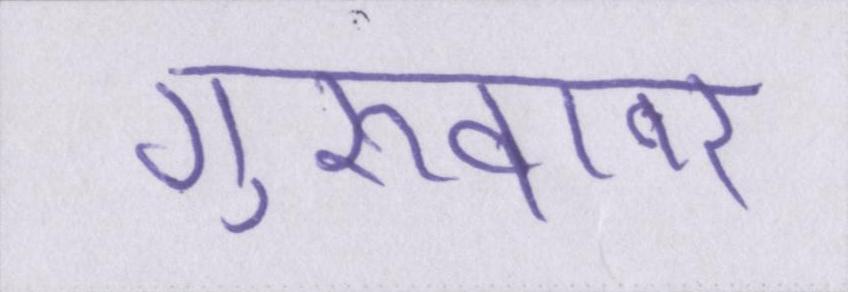 गुरूवार